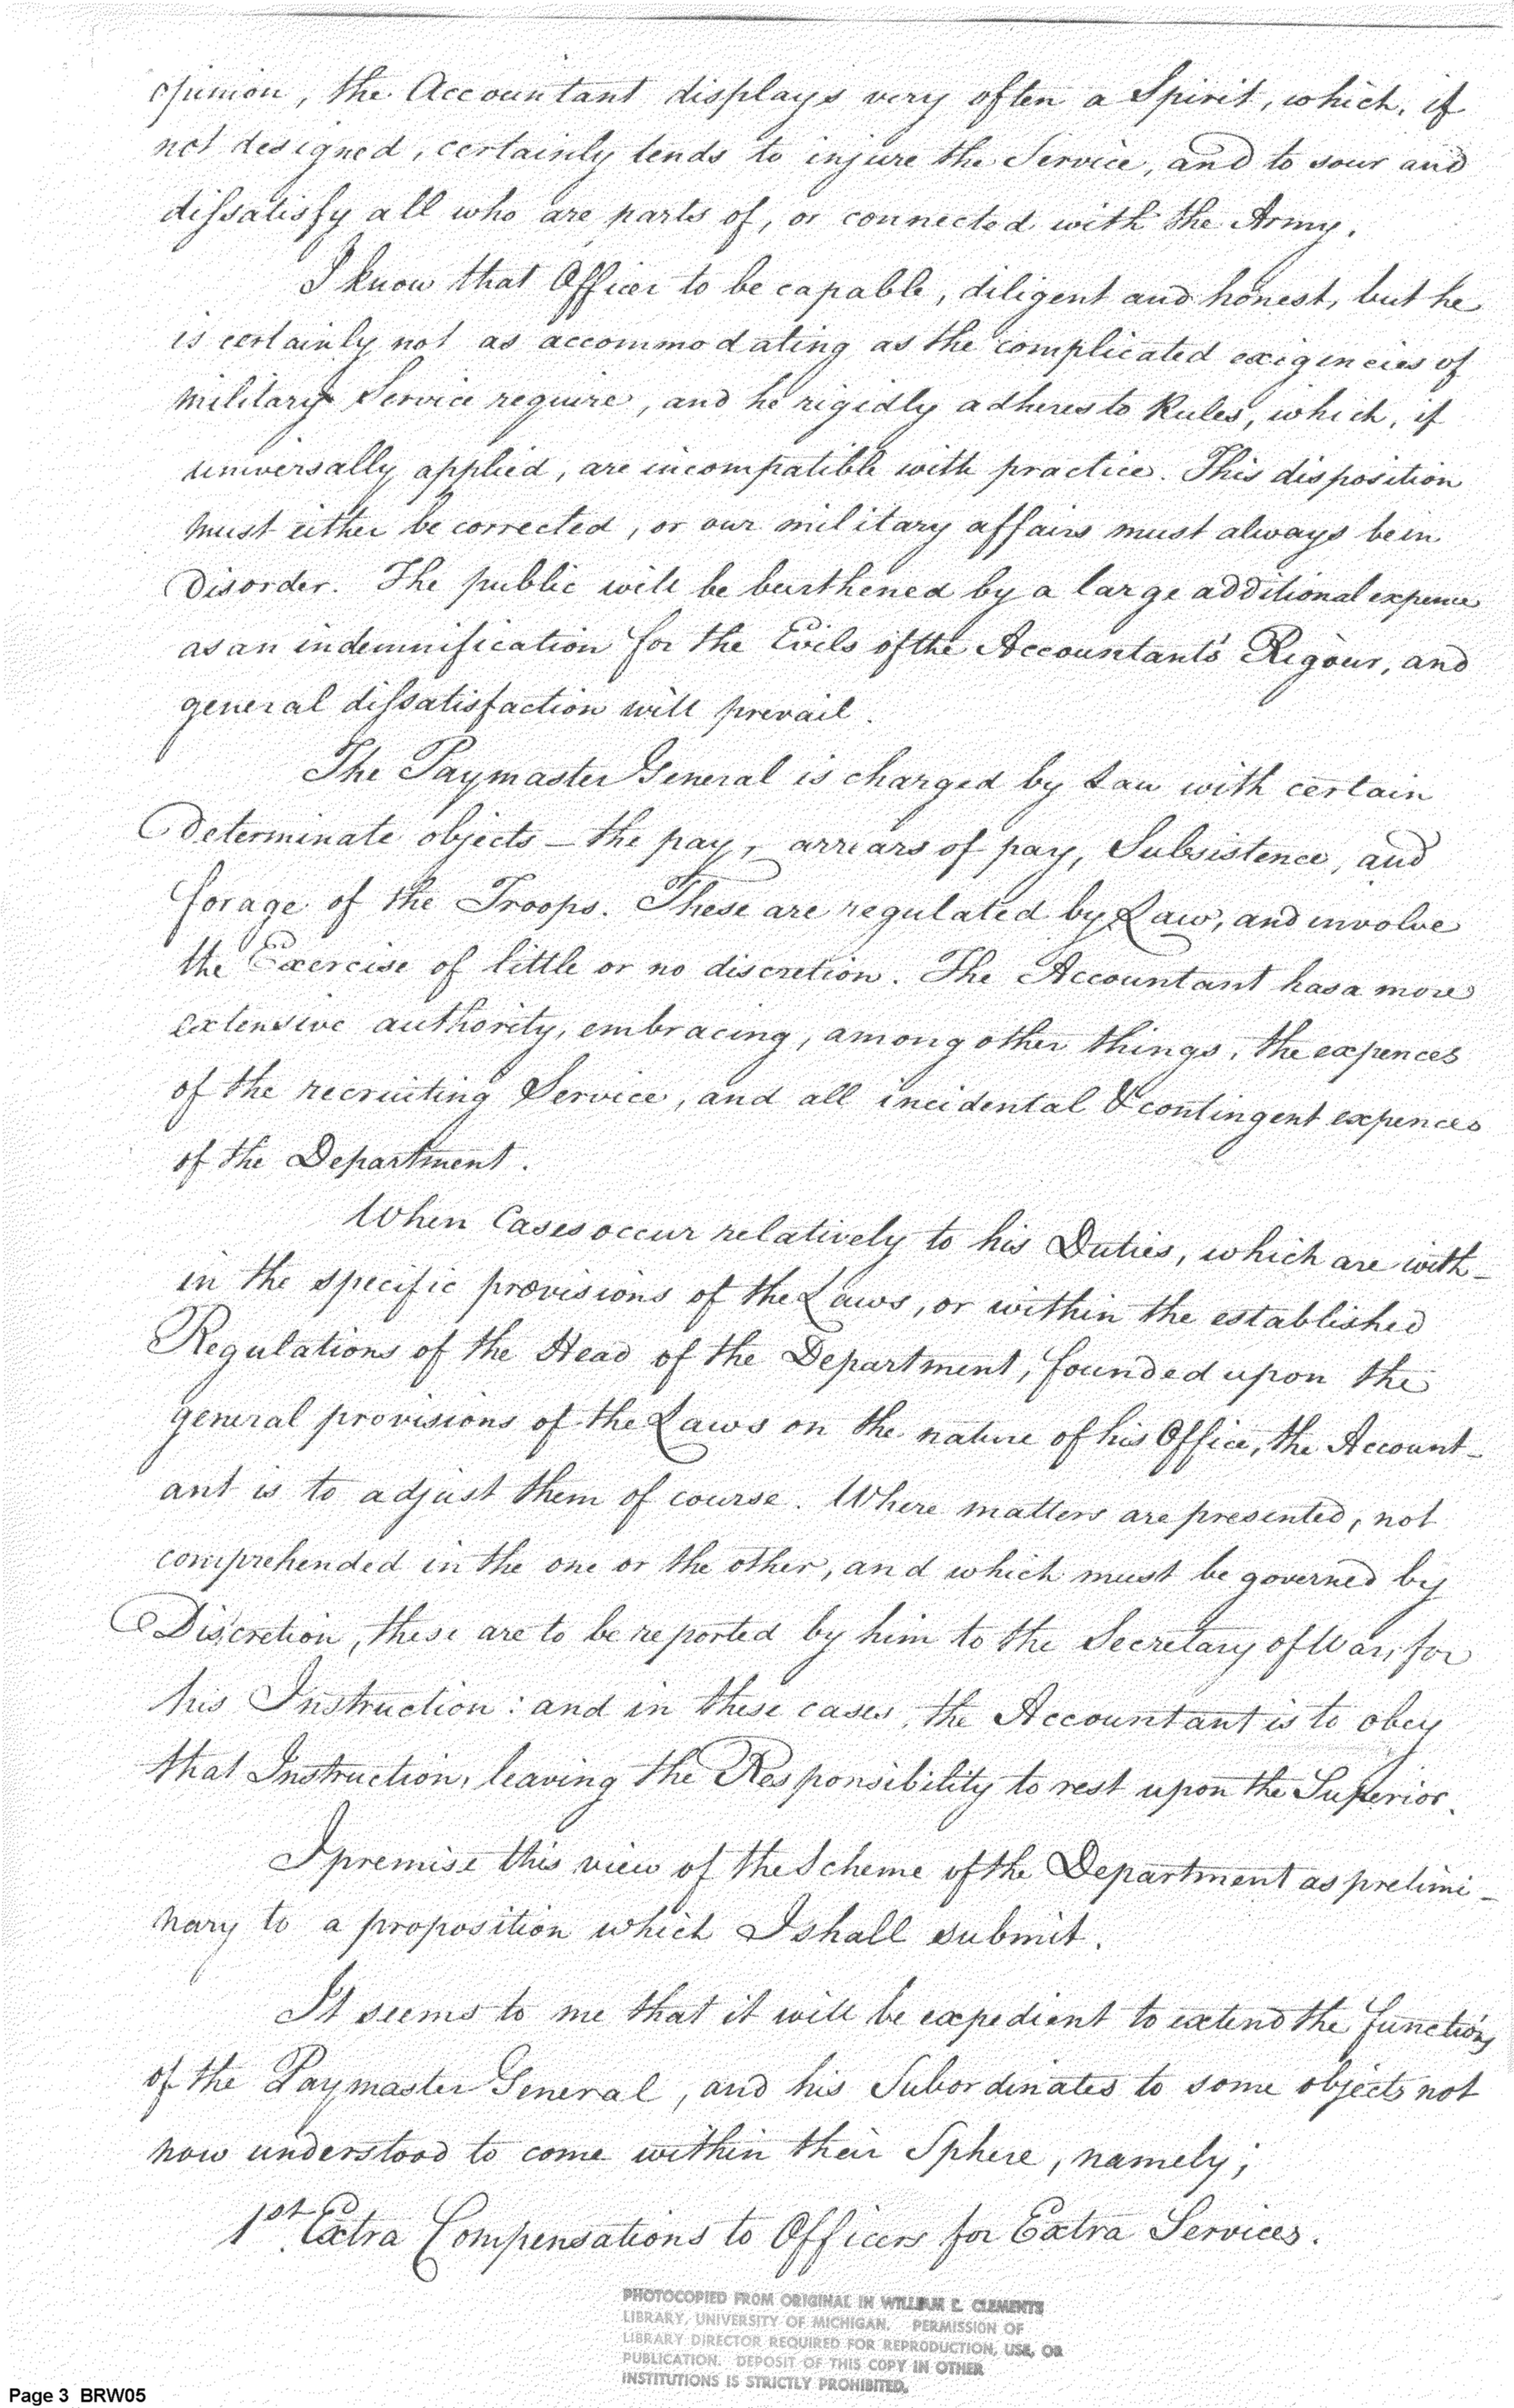 opinion, the Accountant displays very often a Spirit, which, if
not designed, certainly tends to injure the Service, and to sour and
dissatisfy all who are parts of, or connected with the Army.
I know that Officer to be capable, diligent and honest, but he
is certainly not as accommodating as the complicated exigencies of
military Service require, and he rigidly adheres to Rules, which, if
universally applied, are incompatible with practice. This disposition
must either be corrected, or our military affairs must always be in
Disorder. The public will be burthened by a large additional expence
as an indemnification for the Evils of the Accountants' Rigour, and
general dissatisfaction will prevail.
The Paymaster General is charged by Law with certain
Determinate objects – the pay, arrears of pay, Subsistence, and
forage of the Troops. These are regulated by Law, and involve
the Exercise of little or no discretion. The Accountant has a more
extensive authority, embracing, among other things, the expences
of the recruiting Service, and all incidental & contingent expences
of the Department.
When Cases occur relatively to his Duties, which are with-
in the specific provisions of the Laws, or within the established
Regulations of the Head of the Department, founded upon the
general provisions of the Laws on the nature of his Office, the Account-
ant is to adjust them of course. Where matters are presented, not
comprehended in the one or the other, and which must be governed by
Discretion, these are to be reported by him to the Secretary of War, for
his Instruction: and in these cases, the Accountant is to obey
that Instruction, leaving the Responsibility to rest upon the Superior.
I premise this view of the Scheme of the Department as prelimi-
nary to a proposition which I shall submit.
It seems to me that it will be expedient to extend the functions
of the Paymaster General, and his Subordinates to some objects not
now understood to come within their Sphere, namely;
1st Extra Compensations to Officers for Extra Services.
PHOTOCOPIED FROM ORIGINAL IN WILLIAM C. CLEMENTS
LIBRARY, UNIVERSITY OF MICHIGAN. PERMISSION OF
LIBRARY DIRECTOR REQUIRED FOR REPRODUCTION, USE, OR
PUBLICATION. DEPOSIT OF THIS COPY IN OTHER
INSTITUTIONS IS STRICTLY PROHIBITED.
Page 3 BRW05